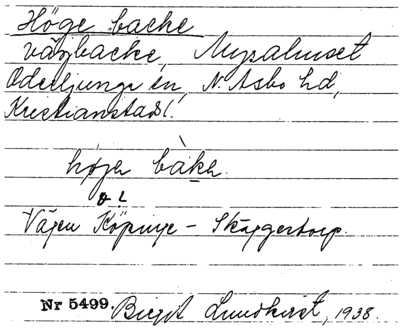 Höge backe
vägbacke, Mysahuset
Oderljunga sn, N. Åsbo hd,
Kristianstads l.
høgɐ bàkɐ.
Vägen Köpinge – Skäggestorp.
Nr 5499. Birgit Lundkvist, 1938.